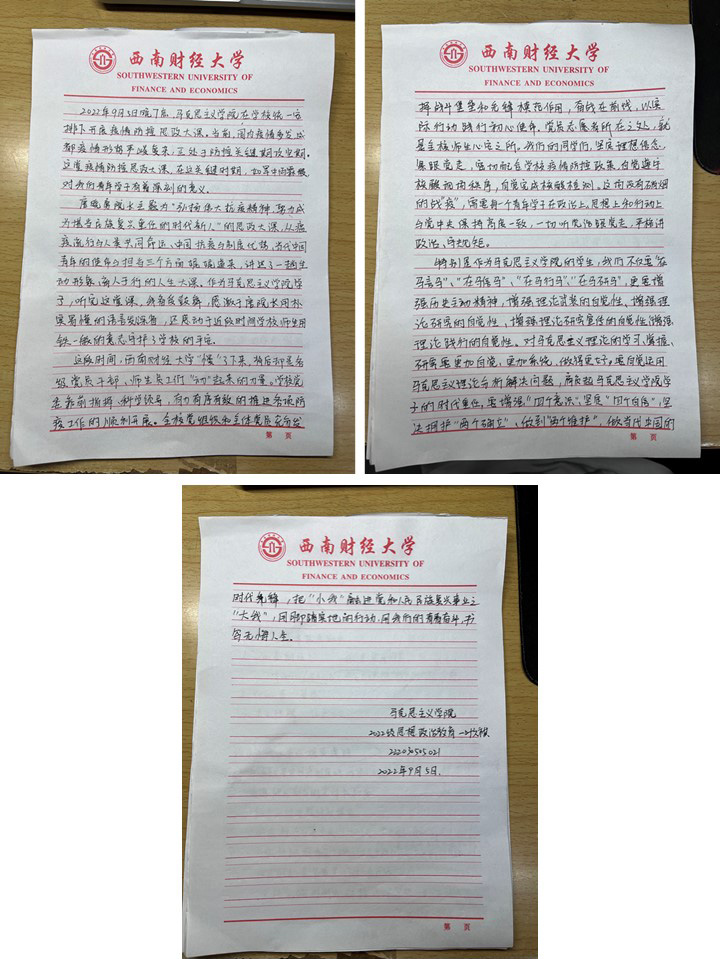 西南财经大学
SOUTHWESTERN UNIVERSITY OF
FINANCE AND ECONOMICS
2022年9月3日晚7点,马克思主义学院在学校统一安
排下开展疫情防控思政大课。当前,国内疫情多发,成
都疫情形势严峻复杂,正处于防控关键期攻坚期。
这堂疫情防控思政大课,在这关键时期,如
对我们青年学子有着深刻的意义。
唐晓勇院长主题为“弘扬伟大抗疫精神,努力成
为堪当民族复兴重任的时代新人”的思政大课,从疫
疫流行与人类共同命运、中国抗疫与制度优势、当代中国
青年的使命与担当三个方面娓娓道来,讲述了一场生
动形象、育人于行的人生大课。作为马克思主义学院学
子,听完这堂课,我备受鼓舞,感激于唐院长用朴
实易懂的语言发深省,还感动于近段时间学校师生用
铁一般的意志守护了学校的平安。
这段时间,西南财经大学“慢”了下来,背后却是各
级党员干部、师生员工们“动”起来的力量。学校党
委靠前指挥、科学领导,有力有序有效的推进各项防
疫工作的顺利开展。全校党组织和全体党员充分发
第 页
西南财经大学
SOUTHWESTERN UNIVERSITY OF
FINANCE AND ECONOMICS
挥战斗堡垒和先锋模范作用,奋战在前线,以实
际行动践行初心使命。党员志愿者所在之处,就
是全校师生心安之所。我们的同学们,坚定理想信念,
紧跟党走,密切配合学校疫情防控政策,自觉遵守
核酸检测秩序,自觉完成核酸检测。这面没有硝烟
的“战疫”,需要每一个青年学子在政治上、思想上和行动上
与党中央保持高度一致,一切听党话跟党走,严格讲
政治、守规矩。
特别是作为马克思主义学院的学生,我们不仅要“在
马言马”、“在马信马”、“在马行马”、“在马研马”,更要增
强历史主动精神,增强理论武装的自觉性、增强理
论研究的自觉性、增强理论研究宣传的自觉性、增强
理论践行的自觉性。对马克思主义理论的学习、掌握、
研究要更加自觉、更加系统,做得更好。要自觉运用
马克思主义理论分析解决问题,肩负起马克思主义学院学
子的时代重任。要增强“四个意识”、坚定“四个自信”,坚
决拥护“两个确立”、做到“两个维护”,做当代中国的
第 页
西南财经大学
SOUTHWESTERN UNIVERSITY OF
FINANCE AND ECONOMICS
时代先锋,把“小我”融进党和人民民族复兴事业之
“大我”,用脚踏实地的行动,用我们的青春奋斗,书
写无悔人生。
马克思主义学院
2022级思想政治教育
222030505021
2022年9月5日.
第 页